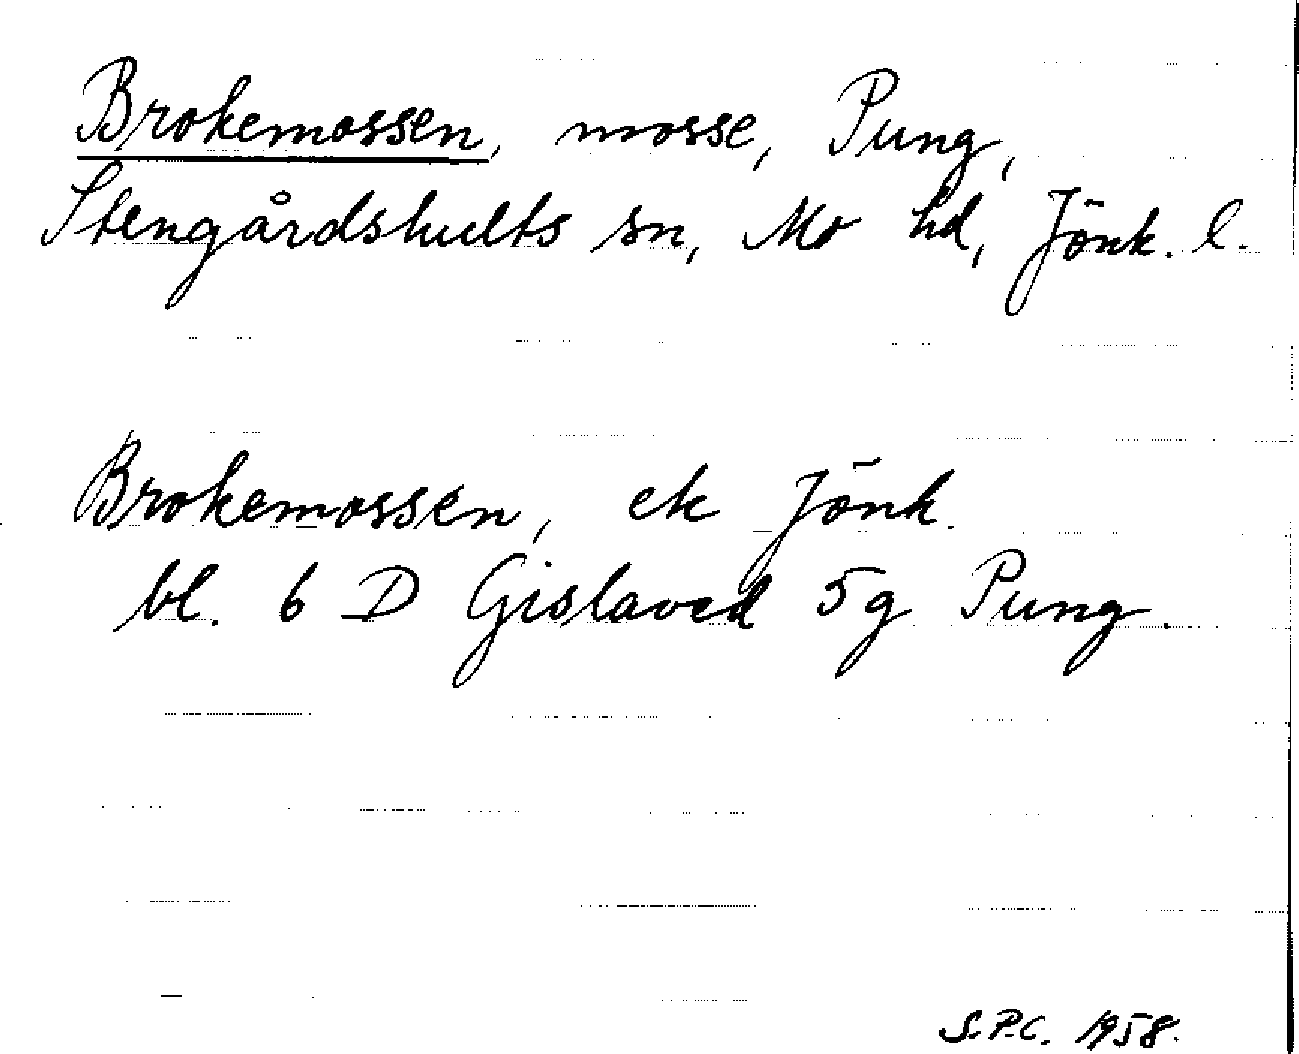 Brokemossen, mosse, Pung,
Stengårdshults sn, Mo hd, Jönk. l.
Brokemossen, ek Jönk.
bl. 6 D Gislaved 5g Pung.
S.P.C. 1958.